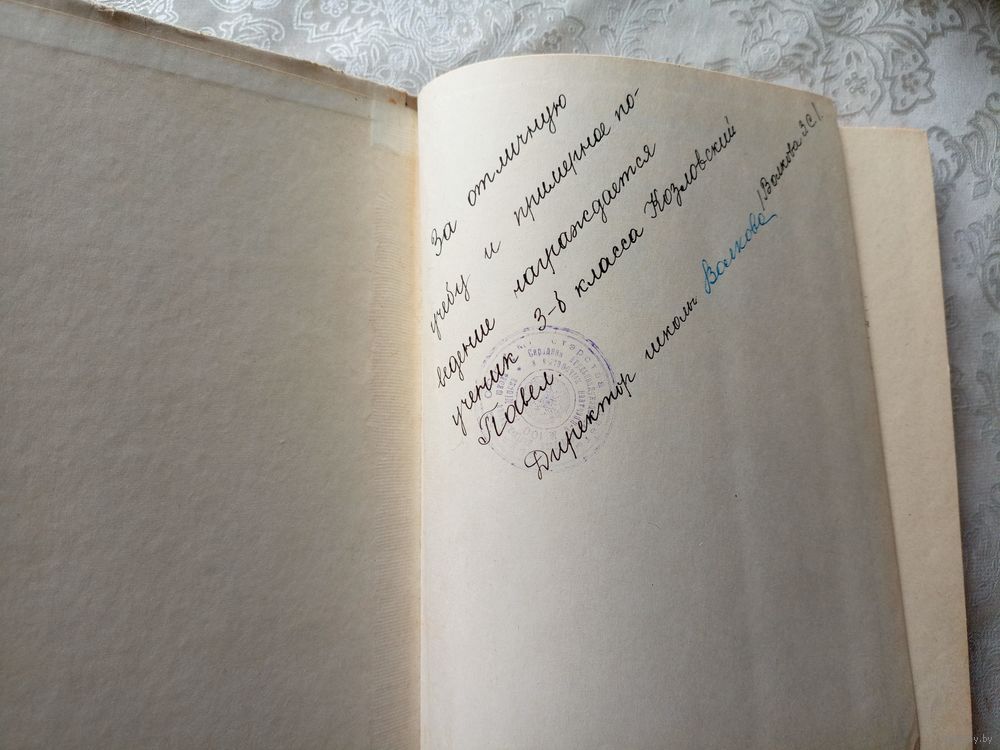 За отличную
учебу и примерное по-
ведение награждается
ученик 3-б класса Козловский
Павел.
Директор школы Волкова /Волкова З.С./